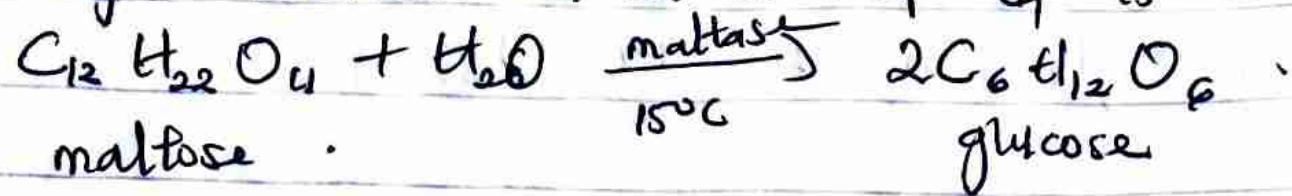 C₁₂ H₂₂ O₁₁ + H₂O maltase → 2C₆ H₁₂ O₆ .
15°C
maltose . glucose